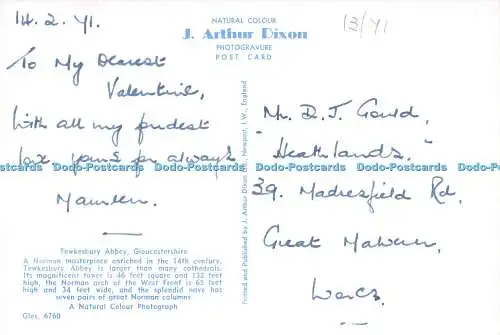 14.2.71.
13/71
NATURAL COLOUR
J. Arthur Dixon
PHOTOGRAVURE
POST CARD
To My Dearest
Valentine,
With all my fondest
love. yours for always
Maureen.
Mr. D. J. Gould,
"Heathlands."
39. Madresfield Rd.
Great Malvern,
Worcs.
Printed and Published by J. Arthur Dixon Ltd., Newport, I.W., England
Tewkesbury Abbey, Gloucestershire
A Norman masterpiece enriched in the 14th century,
Tewkesbury Abbey is larger than many cathedrals.
Its magnificent tower is 46 feet square and 132 feet
high, the Norman arch of the West Front is 65 feet
high and 34 feet wide, and the splendid nave has
seven pairs of great Norman columns
A Natural Colour Photograph
Glos. 6760
Dodo-Postcards Dodo-Postcards Dodo-Postcards Dodo-Postcards Dodo-Postcards